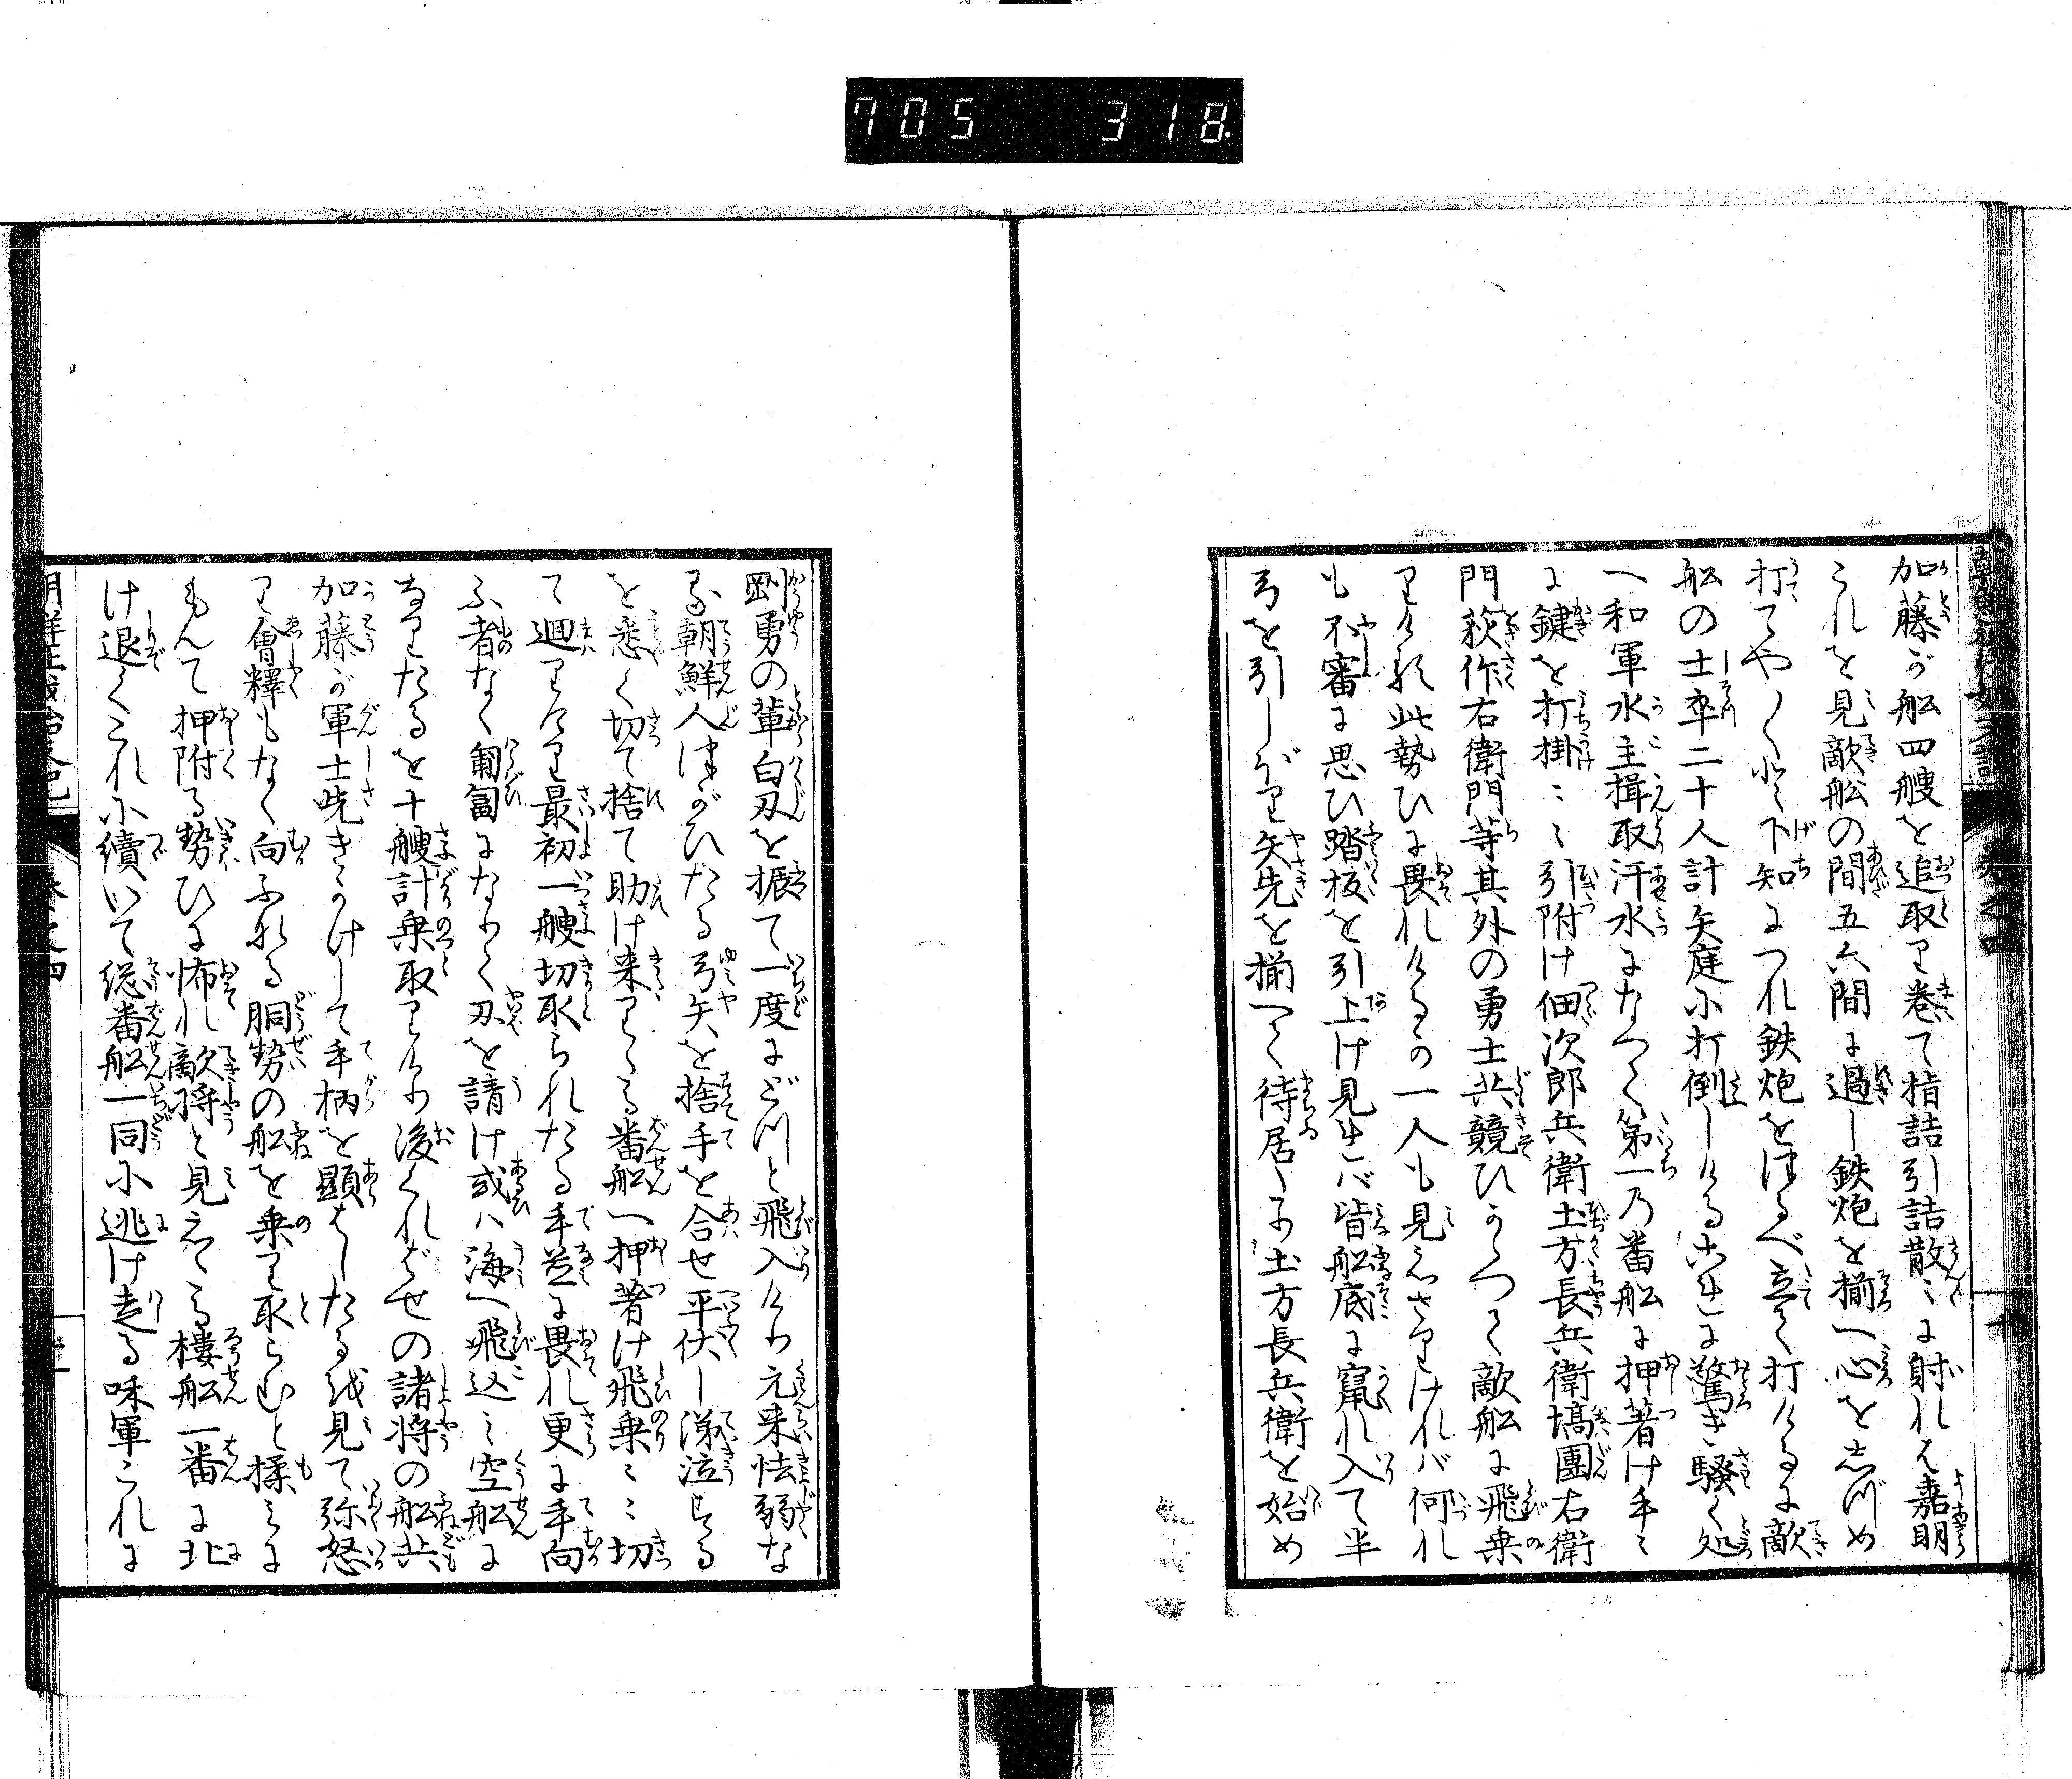 705 318
加藤が船四艘を追取り巻て指詰引詰散〻に射れば嘉明
これを見敵舩の間五六間に過し鉄炮を揃へ心をしづめ
打てや〳〵と下知につれ鉄炮をつるべ立て打けるに敵
舩の士卒二十人計矢庭に打倒しけるこれに驚き騒く処
へ和軍水主揖取汗水になつて第一の番舩に押著け手〻
に鍵を打掛〻〻引附け佃次郎兵衛土方長兵衛塙團右衛
門荻作右衛門等其外の勇士共競ひかゝつて敵舩に飛乗
りける此勢ひに畏れけるか一人も見えざりければ何れ
も不審に思ひ踏板を引上け見れば皆舩底に竄れ入て半
弓を引しぼり矢先を揃へて待居たり土方長兵衛を始め
剛勇の輩白刃を振て一度にどつと飛入けり元来怯弱な
る朝鮮人つがひたる弓矢を捨手を合せ平伏し涕泣する
を悉く切て捨て助け来りたる番舩へ押著け飛乗〻〻切
て廻りける最初一艘切取られたる手並に畏れ更に手向
ふ者なく匍匐になりて刃を請け或は海へ飛込み空舩に
なりたるを十艘計乗取りけり後くればせの諸将の舩共
加藤が軍士先きかけして手柄を顕はしたる越見て弥怒
り會釋もなく向ふれる胴勢の舩を乗り取らむと揉みに
もんて押附る勢ひに怖れ敵将と見えたる樓舩一番に北
け退くこれに續いて総番舩一同に逃け走る味軍これに